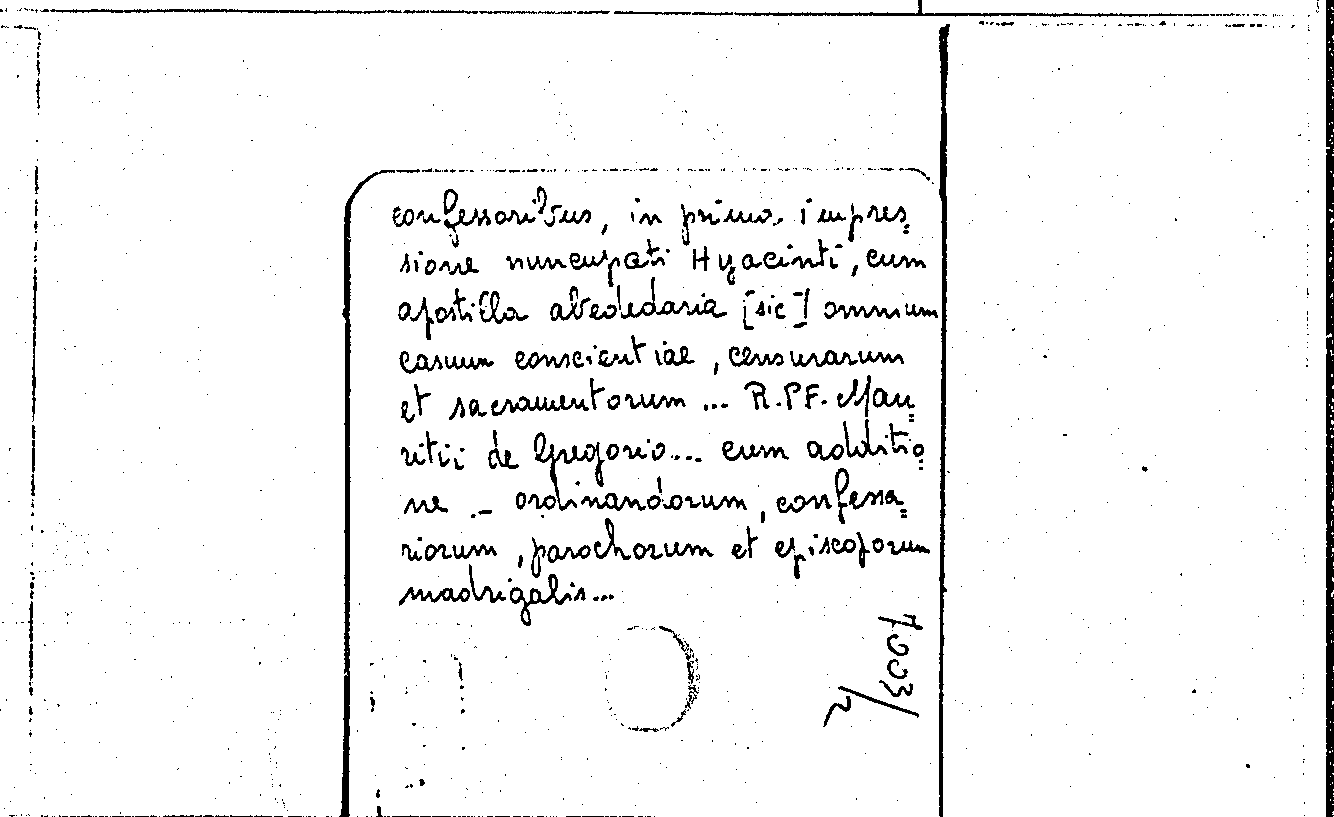 confessoribus, in prima impres=
sione nuncupati Hyacinti, cum
apostilla abcdedaria [sic] omnium
casuum conscientiae, censurarum
et sacramentorum ... R.P.F. Mau=
ritii de Gregorio... cum additio=
ne _ ordinandorum, confessa=
riorum, parochorum et episcoporum
madrigalis...
7003/2